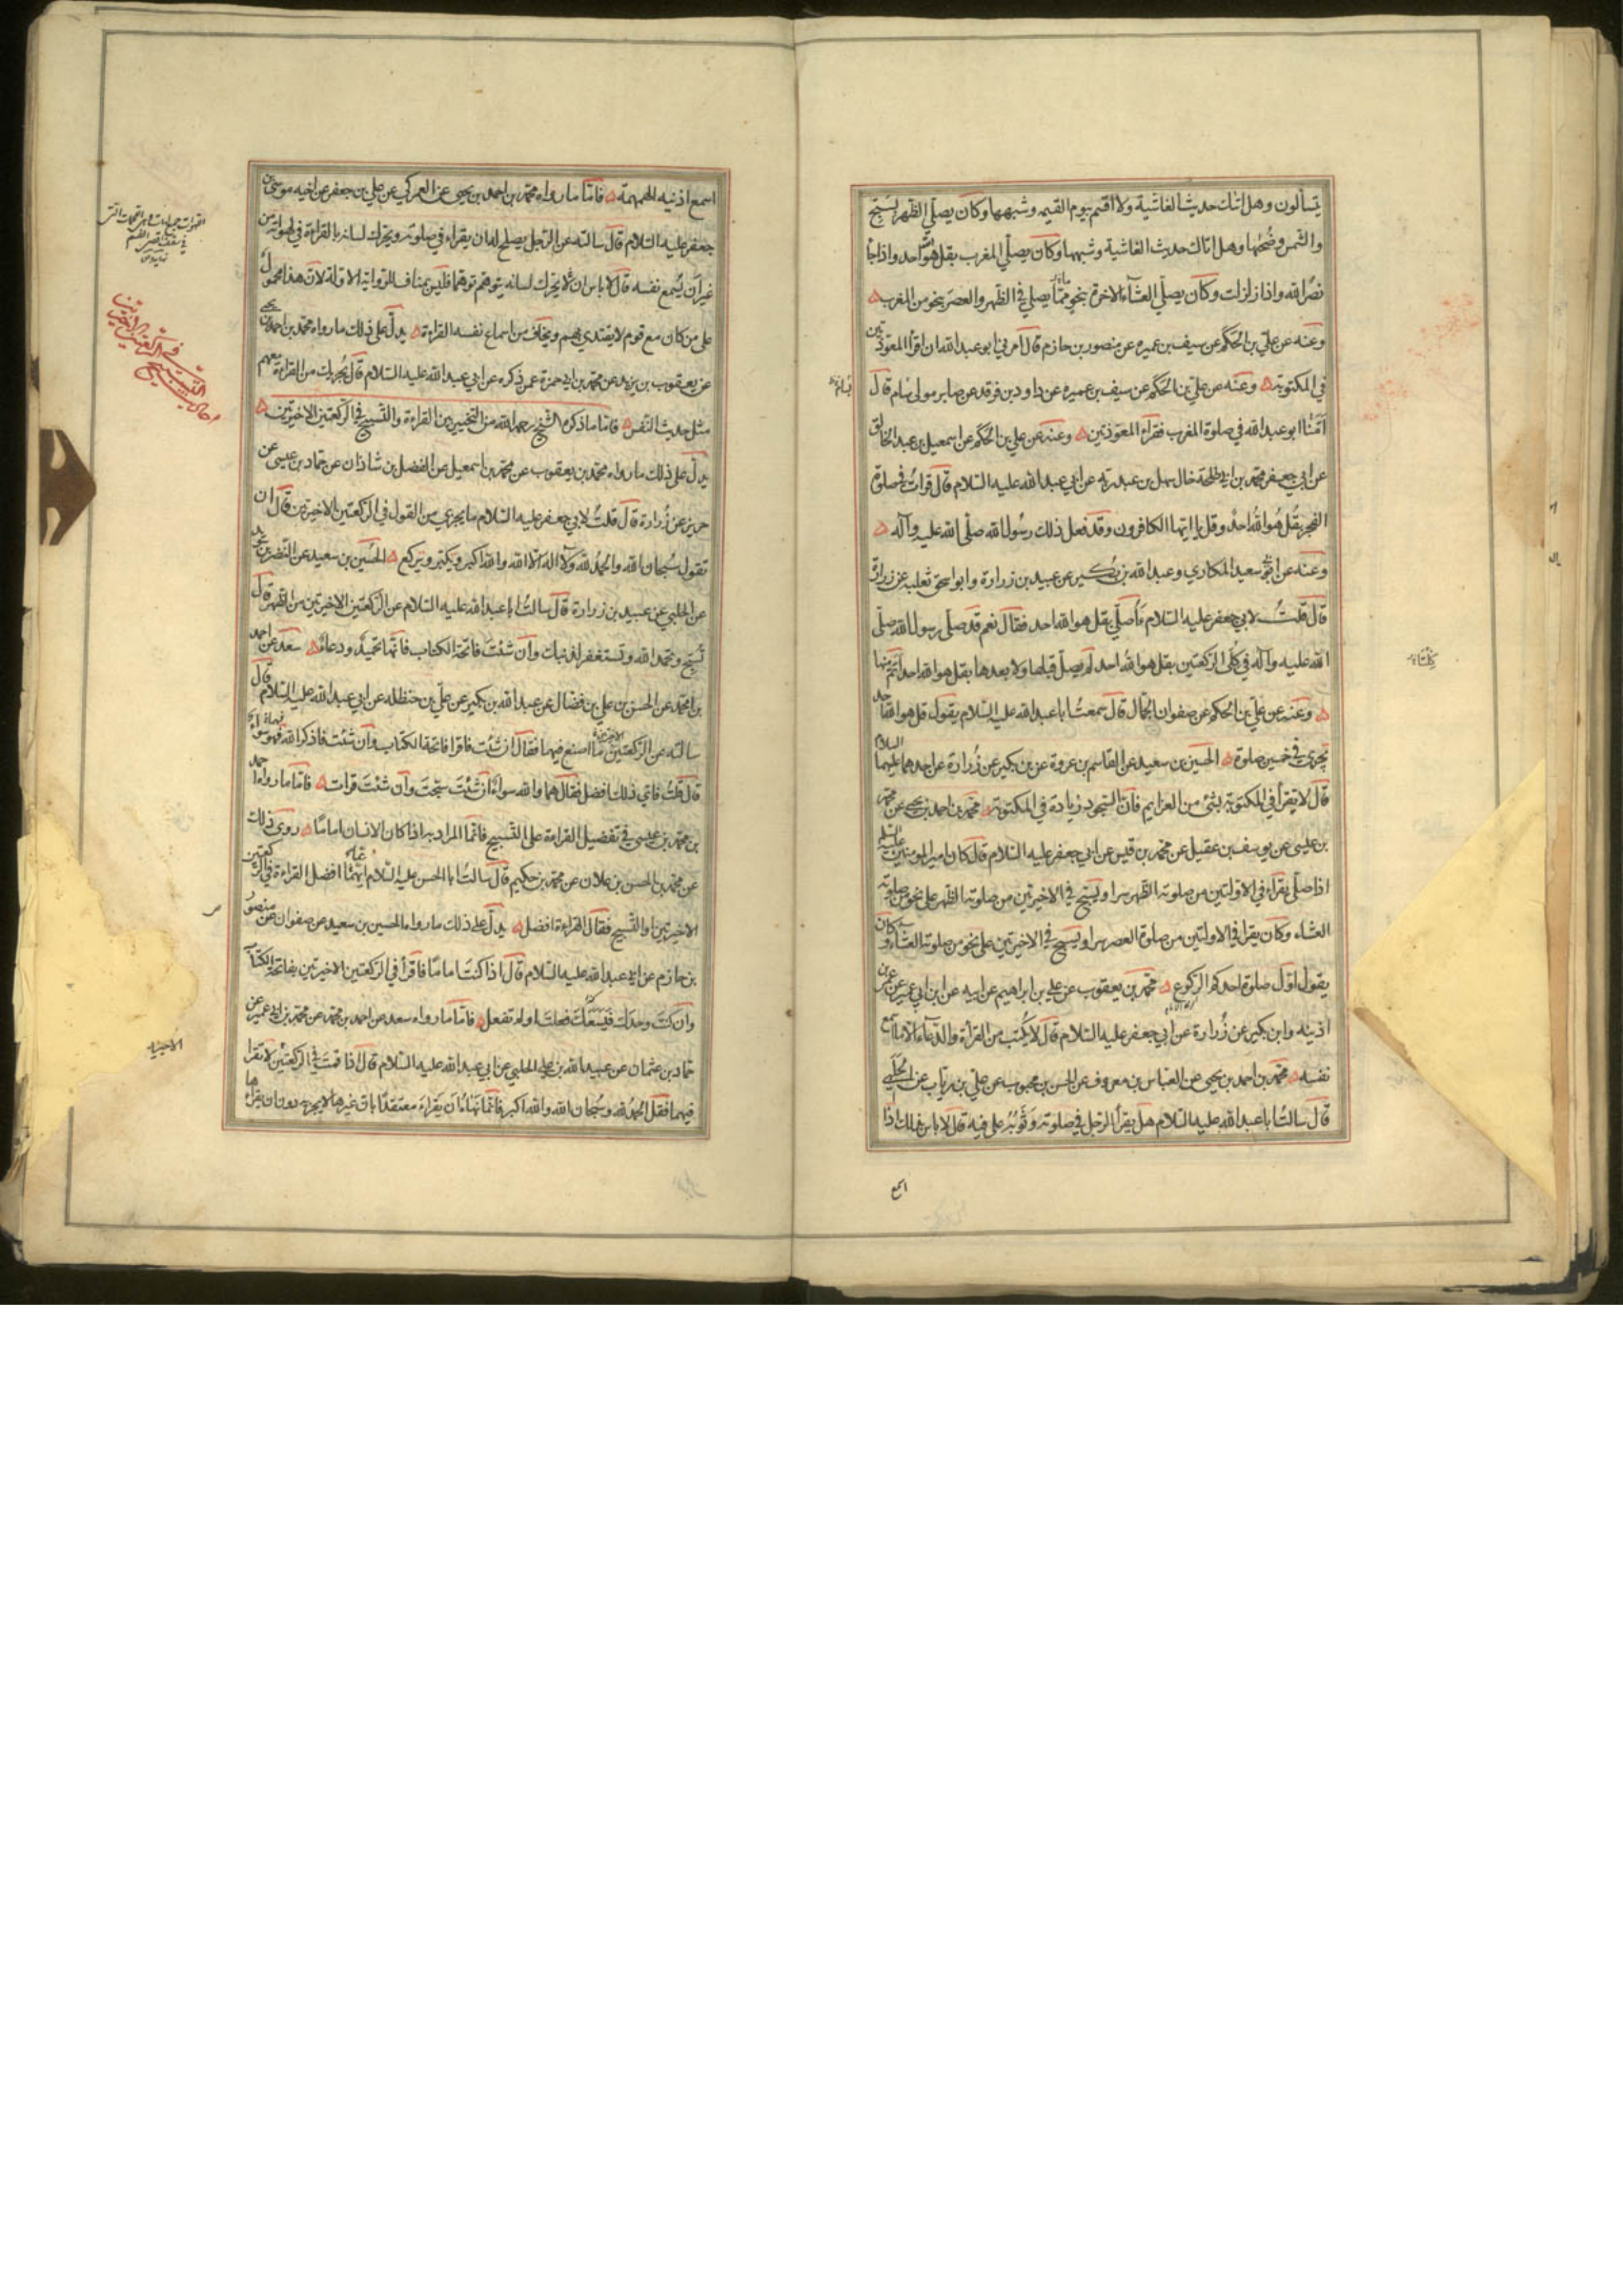 يتسألون وهل اتاك حديث الغاشية ولا اقسم بيوم القيمه وشبهها وكان يصلّي الظهر بسبّح
والشمس وضُحيها وهل اتاك حديث الغاشية وشبهها وكان يصلّي المغرب بقل هو الله احد واذا جآ
نصرُ الله واذا زلزلت وكان يصلّي العشآء الاخرة بنحوٍ ممّا يصلي في الظهر والعصر بنحو من المغرب
وعنه عن علي بن الحكم عن سيف بن عميره عن منصور بن حازم قال امرني ابو عبد الله ان اقرأ المعوذتين
في المكتوبة وعنه عن علي بن الحكم عن سيف بن عميره عن داود بن فرقد عن صابر مولى بسام قال
اَمّنا ابو عبد الله في صلوة المغرب فقراء المعوّذتين وعنه عن علي بن الحكم عن اسمعيل بن عبد الخالق
عن ابي جعفر محمد بن ابي طلحة خال سهل بن عبد ربه عن ابي عبد الله عليه السّلام قال قرأت في صلوة
الفجر بقُل هُو اللهُ احدٌ وقل يا ايّها الكافرون وقد فعل ذلك رسُول الله صلّى الله عليه وآله
وعنه عن ابي سعيد المكاري وعبد الله بن بكير عن عبيد بن زرارة وابو اسحق ثعلبه عن زرارة
قال قلتُ لابي جعفر عليه السّلام ءاُصلّي بقل هو الله احد فقال نعم قد صلّى رسول الله صلّى
الله عليه وآله في كلتى الركعتين بقل هو الله احد لم يصلّ قبلها ولا بعدها بقل هو الله احد اتمّ منها
وعنه عن علي بن الحكم عن صفوان الجمّال قال سمعتُ ابا عبد الله عليه السّلام يقول قل هو الله احد
تجزى في خمسين صلوة الحسين بن سعيد عن القاسم بن عروة عن بن بكير عن زُرارة عن احدهما عليهما السلام
قال لا يقرأ في المكتوبة بشئ من العزايم فان السّجود زيادة في المكتوبة محمد بن احمد بن يحيى عن محمد
بن عيسى عن يوسف بن عقيل عن محمد بن قيس عن ابي جعفر عليه السّلام قال كان امير المومنين عليه السّلم
اذا صلّى يقراء في الاوّلتين من صلوته الظهر سرا ويسبّح في الاخيرتين من صلوته الظهر على نحو من صلوته
العشاء وكان يقرا في الاولتين من صلوة العصر سرا ويسبّح في الاخيرتين على نحو من صلوته العشآء وكان
يقول اوّل صلوة احدكم الركوع محمّد بن يعقوب عن علي بن ابراهيم عن ابيه عن ابن ابي عمير عن عمر بن
اذينه وابن بكير عن زُرارة عن ابي جعفر عليه السّلام قال لا يكتب من القرأة والدّعاء الا ما اسمع
نفسه محمّد بن احمد بن يحيى عن العبّاس بن معروف عن الحسن بن محبوب عن علي بن رياب عن الحلبي
قال سالتُ ابا عبد الله عليه السّلام هل يقرأ الرّجل في صلوته وثَوْبُهُ على فيه قال لا باس بذلك اذا
اسمع
بسام
اسمع اذنيه الهمهمة فامّا ما رواه محمّد بن احمد بن يحيى عن العمركي عن علي بن جعفر عن اخيه موسى بن
جعفر عليه السّلام قال سالته عن الرّجل يصلح له ان يقراء في صلوته ويحرّك لسانه بالقراءة في لهواته من
غير ان يُسمع نفسه قال لا باس ان لا يحرّك لسانه يتوهّم توهّما فليس بمناف للرّواية الاوّلة لانّ هذا محمولٌ
على من كان مع قوم لا يقتدي بهم ويخاف من اسماع نفسه القراءة يدلّ على ذلك ما رواه محمد بن احمد بن يحيى
عن يعقوب بن يزيد عن محمّد بن ابي حمزة عمن ذكره عن ابي عبد الله عليه السّلام قال يُجزيك من القراءة معهم
مثل حديث النّفس فامّا ما ذكره الشيخ رحمه الله من التخيير بين القراءة والتّسبيح في الركعتين الاخيرتين
يدلّ على ذلك ما رواه محمّد بن يعقوب عن محمّد بن اسمعيل عن الفضل بن شاذان عن حمّاد بن عيسى عن
حريز عن زُرارة قال قلتُ لابي جعفر عليه السّلام ما يجزي من القول في الركعتين الاخيرتين قال ان
تقول سُبحان الله والحمدُ لله ولا اله الّا الله والله اكبر ويكبّر ويركع الحُسين بن سعيد عن النضر بن سويد
عن الحلبي عن عبيد بن زرارة قال سالتُ ابا عبد الله عليه السّلام عن الركعتين الاخيرتين من الظهر قال
تسبّح وتحمد الله وتستغفر لذنبك وان شئت فاتحة الكتاب فانّها تحميدٌ ودعاءٌ سعد عن احمد
بن محمّد عن الحسن بن علي بن فضال عن عبد الله بن بكير عن علي بن حنظله عن ابي عبد الله عليه السّلام قال
سالته عن الركعتين الاخيرتين ما اصنع فيهما فقال ان شئت فاقرا فاتحة الكتاب وان شئت فاذكر الله فهو سوآء
قال قلتُ فاي ذلك افضل فقال هما والله سواءٌ ان شئت سبّحت وان شئت قرات فامّا ما رواه احمد
بن محمّد بن عيسى في تفضيل القراءة على التّسبيح فانّما المراد به اذا كان الانسان اماما روى ذلك
عن محمّد بن الحسن بن علان عن محمّد بن حكيم قال سالتُ ابا الحسن عليه السّلام ايّهما افضل القراءة في الركعتين
الاخيرتين او التّسبيح فقال القراءة افضل يدلّ على ذلك ما رواه الحسين بن سعيد عن صفوان عن منصور
بن حازم عن ابي عبد الله عليه السّلام قال اذا كنتَ امامًا فاقرأ في الركعتين الاخيرتين بفاتحة الكتاب
وان كنت وحدك فيسعُك فعلت او لم تفعل فامّا ما رواه سعد عن احمد بن محمّد عن محمّد بن ابي عمير عن
حمّاد بن عثمان عن عبيد الله بن علي الحلبي عن ابي عبد الله عليه السّلام قال اذا قمت في الركعتين لا تقرا
فيهما فقل الحمدُ لله وسُبحان الله والله اكبر فانّما نهاه ان يقراء معتقدًا بان غيرها لا يجزيه دون ان يقراها